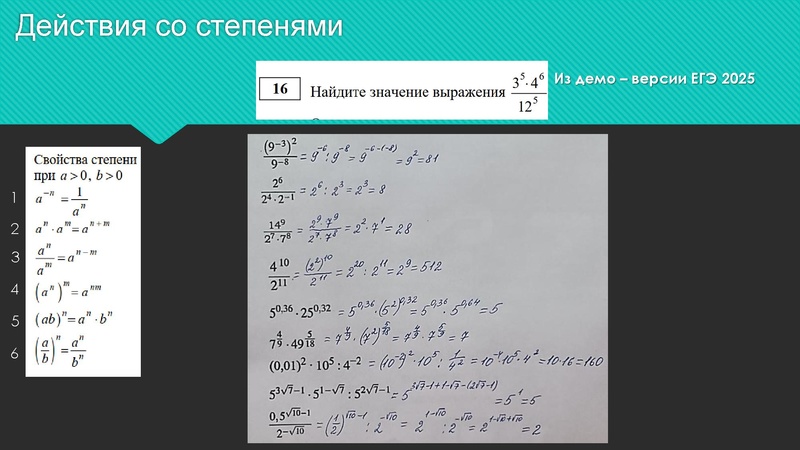 Действия со степенями
16 Найдите значение выражения 3^5·4^6/12^5
Из демо – версии ЕГЭ 2025
Свойства степени
при a>0, b>0
1 a^{-n} = 1/a^n
2 a^n · a^m = a^{n+m}
3 a^n/a^m = a^{n-m}
4 (a^n)^m = a^{nm}
5 (ab)^n = a^n · b^n
6 (a/b)^n = a^n/b^n
(9^{-3})^2/9^{-8} = 9^{-6} : 9^{-8} = 9^{-6-(-8)} = 9^2 = 81
2^6/(2^4·2^{-1}) = 2^6 : 2^3 = 2^3 = 8
14^9/(2^7·7^8) = 2^9·7^9/(2^7·7^8) = 2^2·7^1 = 28
4^{10}/2^{11} = (2^2)^{10}/2^{11} = 2^{20} : 2^{11} = 2^9 = 512
5^{0,36} · 25^{0,32} = 5^{0,36} · (5^2)^{0,32} = 5^{0,36} · 5^{0,64} = 5
7^{4/9} · 49^{5/18} = 7^{4/9} · (7^2)^{5/18} = 7^{4/9} · 7^{5/9} = 7
(0,01)^2 · 10^5 : 4^{-2} = (10^{-2})^2 · 10^5 : 1/4^2 = 10^{-4}·10^5·4^2 = 10·16 = 160
5^{3√7-1} · 5^{1-√7} : 5^{2√7-1} = 5^{3√7-1+1-√7-(2√7-1)} = 5^1 = 5
0,5^{√10-1}/2^{-√10} = (1/2)^{√10-1} : 2^{-√10} = 2^{1-√10} : 2^{-√10} = 2^{1-√10+√10} = 2